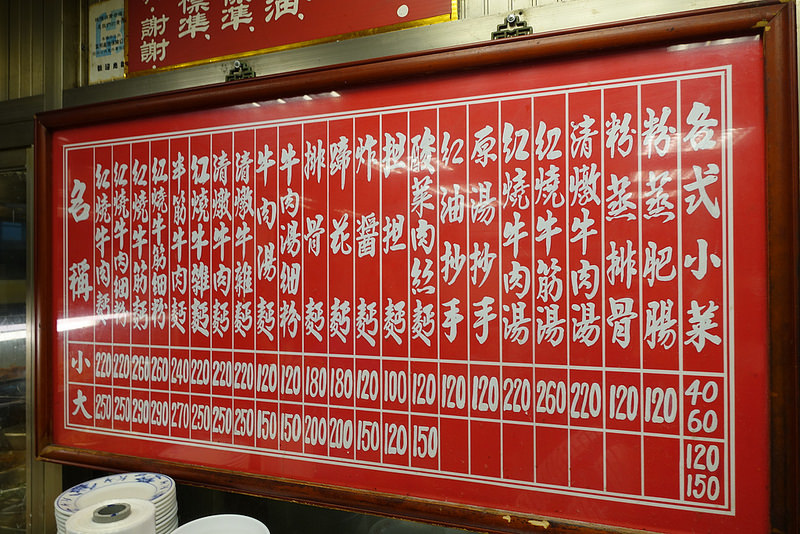 謝謝
標準
標準、
油、
名稱 小 大
紅燒牛肉麵 220 250
紅燒牛肉細粉 220 250
紅燒牛筋麵 260 290
紅燒牛筋細粉 260 290
半筋牛肉麵 240 270
紅燒牛雜麵 220 250
清燉牛肉麵 220 250
清燉牛雜麵 220 250
牛肉湯麵 120 150
牛肉湯細粉 120 150
排骨麵 180 200
蹄花麵 180 200
炸醬麵 120 150
担担麵 100 120
酸菜肉絲麵 120 150
紅油抄手 120
原湯抄手 120
紅燒牛肉湯 220
紅燒牛筋湯 260
清燉牛肉湯 220
粉蒸排骨 120
粉蒸肥腸 120
各式小菜 40 60 120 150